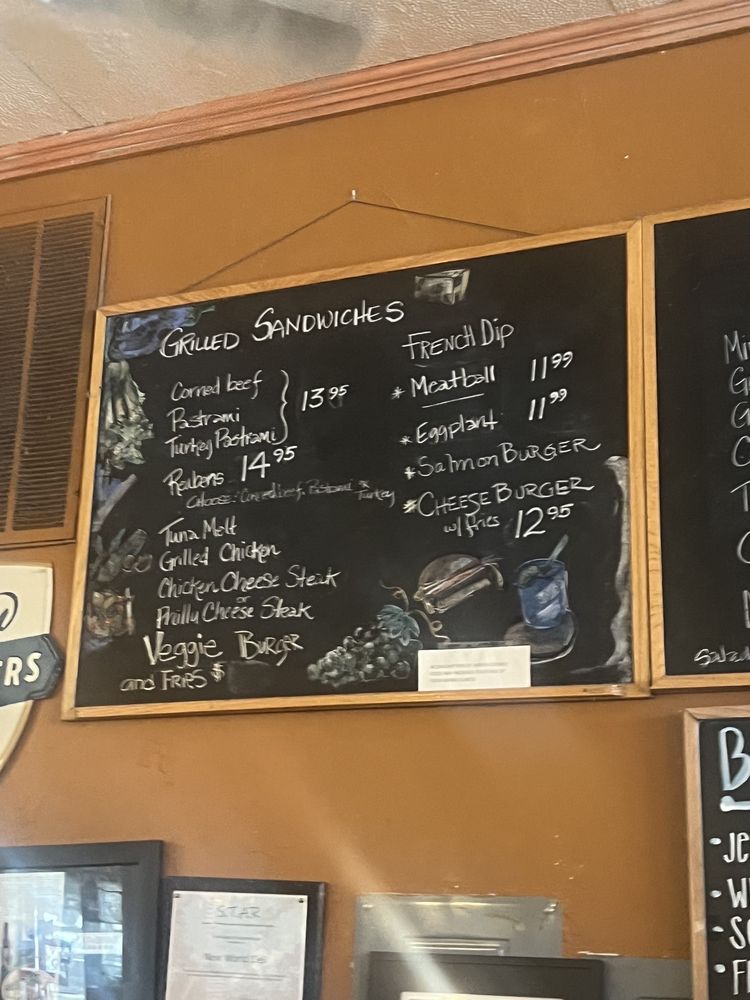 GRILLED SANDWICHES
Corned beef
Pastrami
Turkey Pastrami
13 95
Reubens 14 95
choose: Corned beef, Pastrami or
Turkey
Tuna Melt
Grilled Chicken
Chicken Cheese Steak
or
Philly Cheese Steak
Veggie BURGER
and FRIES $
FRENCH Dip
* Meatball 11 99
* Eggplant 11 99
* Salmon BURGER
* CHEESE BURGER
w/ fries 12 95
Mi
G
G
C
T
Salad
RS
S.T.A.R
New World Deli
B
• JE
• W
• S
• F